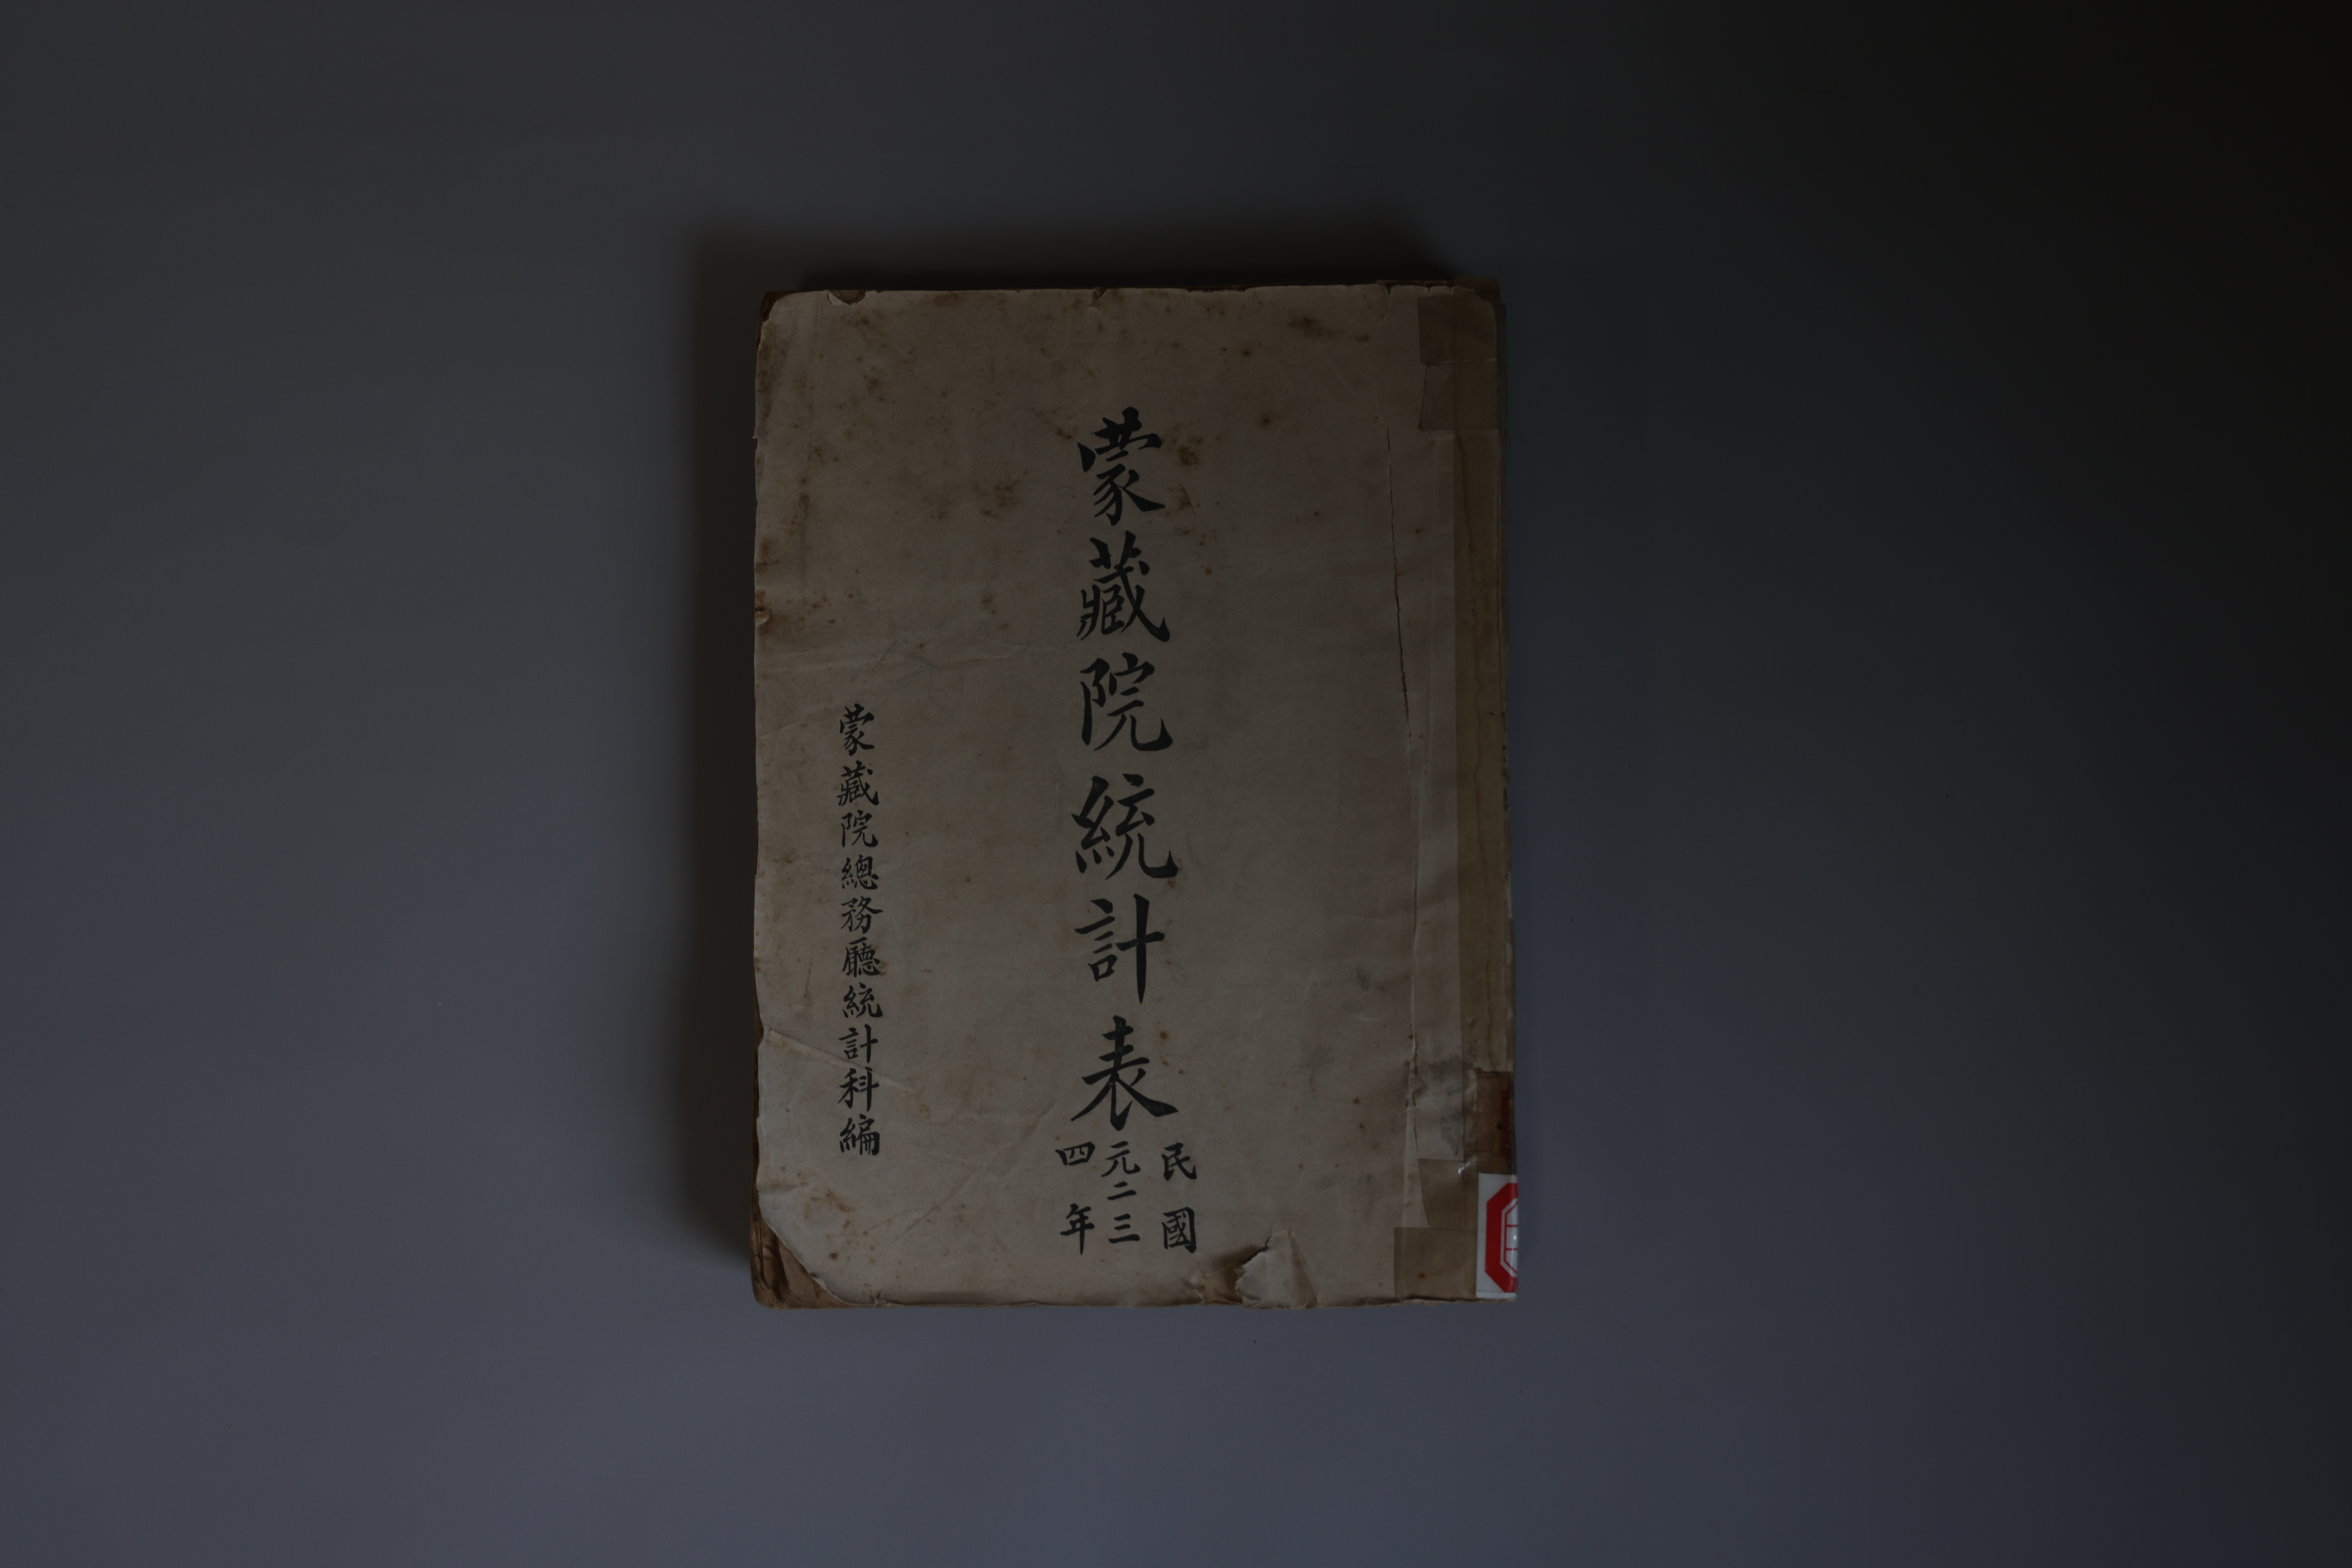 蒙藏院統計表
民國
元二三
四年
蒙藏院總務廳統計科編